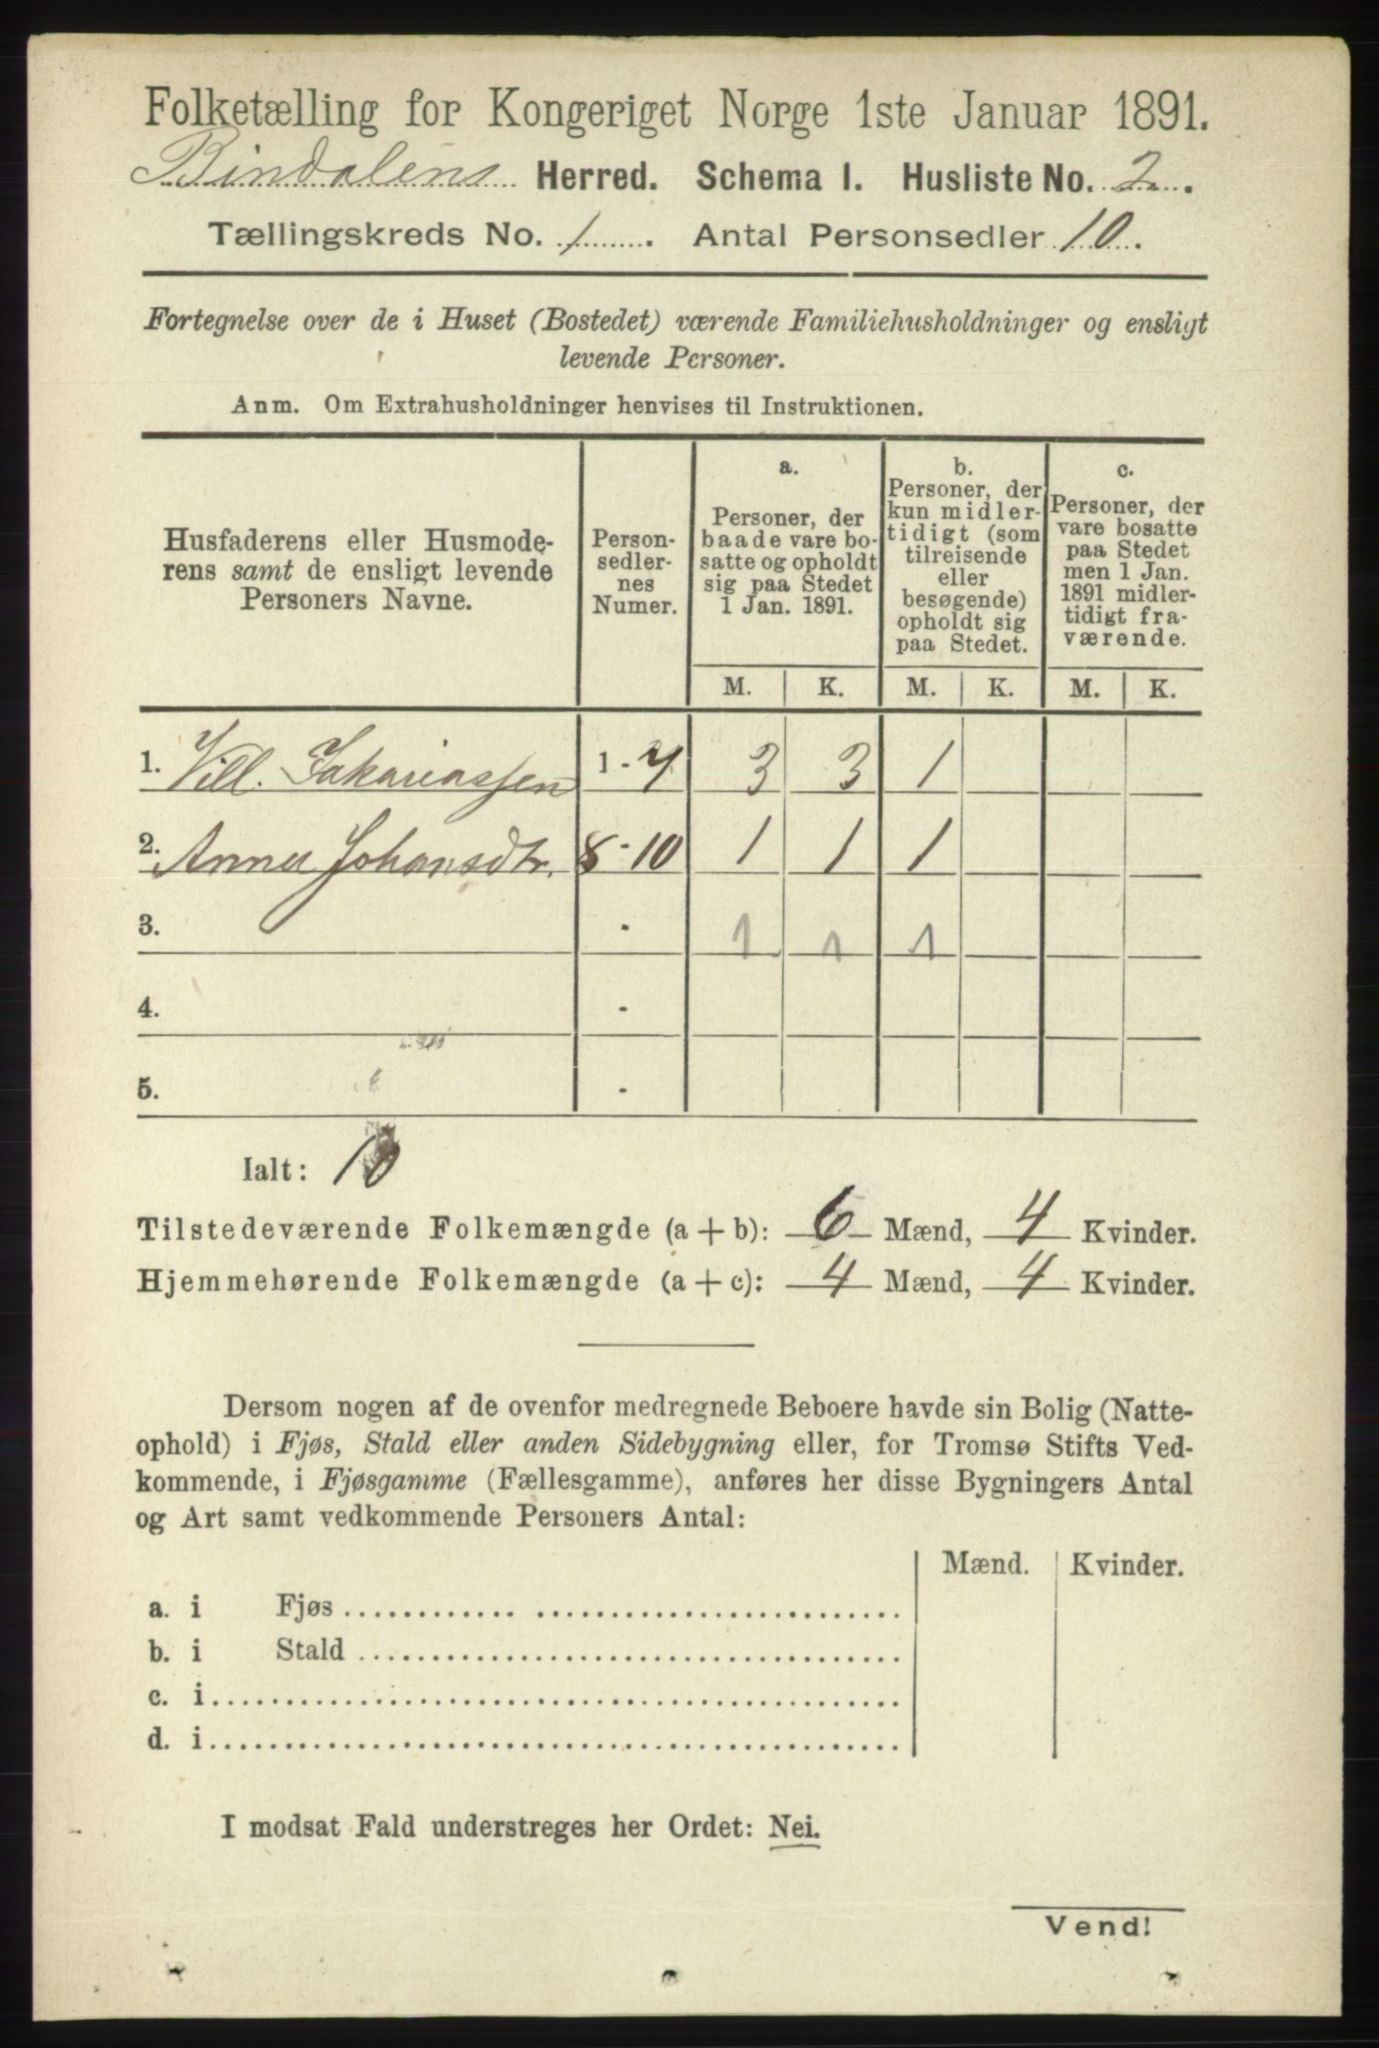 Folketælling for Kongeriget Norge 1ste Januar 1891.
Bindalens Herred. Schema I. Husliste No. 2.
Tællingskreds No. 1. Antal Personsedler 10.
Fortegnelse over de i Huset (Bostedet) værende Familiehusholdninger og ensligt
levende Personer.
Anm. Om Extrahusholdninger henvises til Instruktionen.
Husfaderens eller Husmode-
rens samt de ensligt levende
Personers Navne.
Person-
sedler-
nes
Numer.
a.
Personer, der
baade vare bo-
satte og opholdt
sig paa Stedet
1 Jan. 1891.
b.
Personer, der
kun midler-
tidigt (som
tilreisende
eller
besøgende)
opholdt sig
paa Stedet.
c.
Personer, der
vare bosatte
paa Stedet
men 1 Jan.
1891 midler-
tidigt fra-
værende.
M. K. M. K. M. K.
1. Vill. Zakariassen 1-7 3 3 1
2. Anna Johansdtr. 8-10 1 1 1
3. - 1 1 1
4. -
5. -
Ialt: 10
Tilstedeværende Folkemængde (a + b): 6 Mænd, 4 Kvinder.
Hjemmehørende Folkemængde (a + c): 4 Mænd, 4 Kvinder.
Dersom nogen af de ovenfor medregnede Beboere havde sin Bolig (Natte-
ophold) i Fjøs, Stald eller anden Sidebygning eller, for Tromsø Stifts Ved-
kommende, i Fjøsgamme (Fællesgamme), anføres her disse Bygningers Antal
og Art samt vedkommende Personers Antal:
Mænd. Kvinder.
a. i Fjøs
b. i Stald
c. i
d. i
I modsat Fald understreges her Ordet: Nei.
Vend!